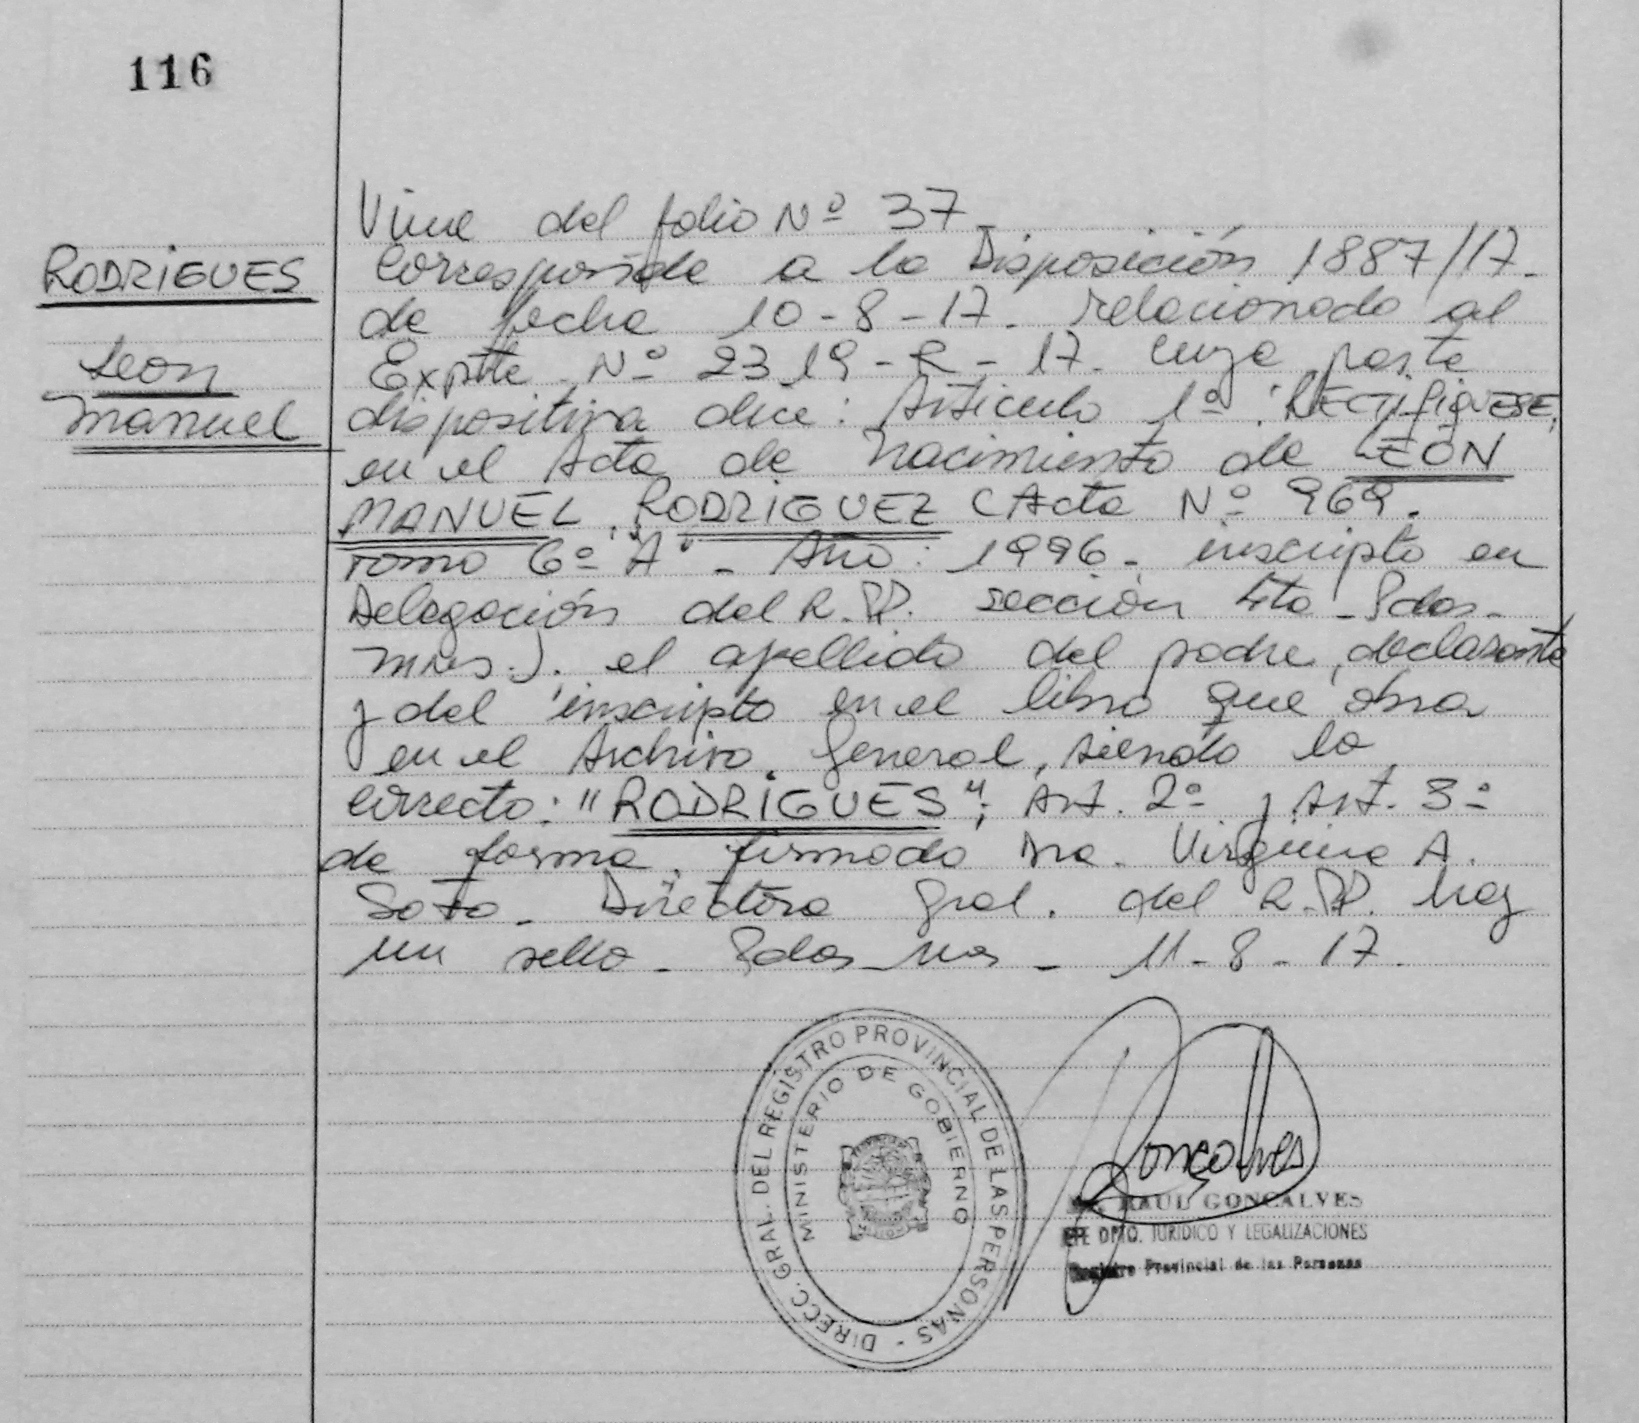 116
RODRIGUES
Leon
Manuel
Viene del folio Nº 37
Corresponde a la Disposición 1887/17-
de fecha 10-8-17- relacionado al
Expte Nº 2319-R-17- cuya parte
dispositiva dice: Articulo 1º: RECTIFIQUESE,
en el Acta de Nacimiento de LEON
MANUEL RODRIGUEZ (Acta Nº 969.
Tomo 6º "A" - Año: 1996- inscripto en
Delegación del R.PP. sección 4ta - Pdas-
Mnes.). el apellido del padre, declarante
y del inscripto en el libro que obra
en el Archivo General, siendo lo
correcto: "RODRIGUES"; Art. 2º y Art. 3º
de forma. firmado Dra. Virginia A.
Soto- Directora Gral. del R.PP. hay
un sello- Pdas Mnes - 11-8-17.
DIRECC. GRAL. DEL REGISTRO PROVINCIAL DE LAS PERSONAS -
MINISTERIO DE GOBIERNO
Goncalves
RAUL GONCALVES
DPTO. JURIDICO Y LEGALIZACIONES
Registro Provincial de las Personas